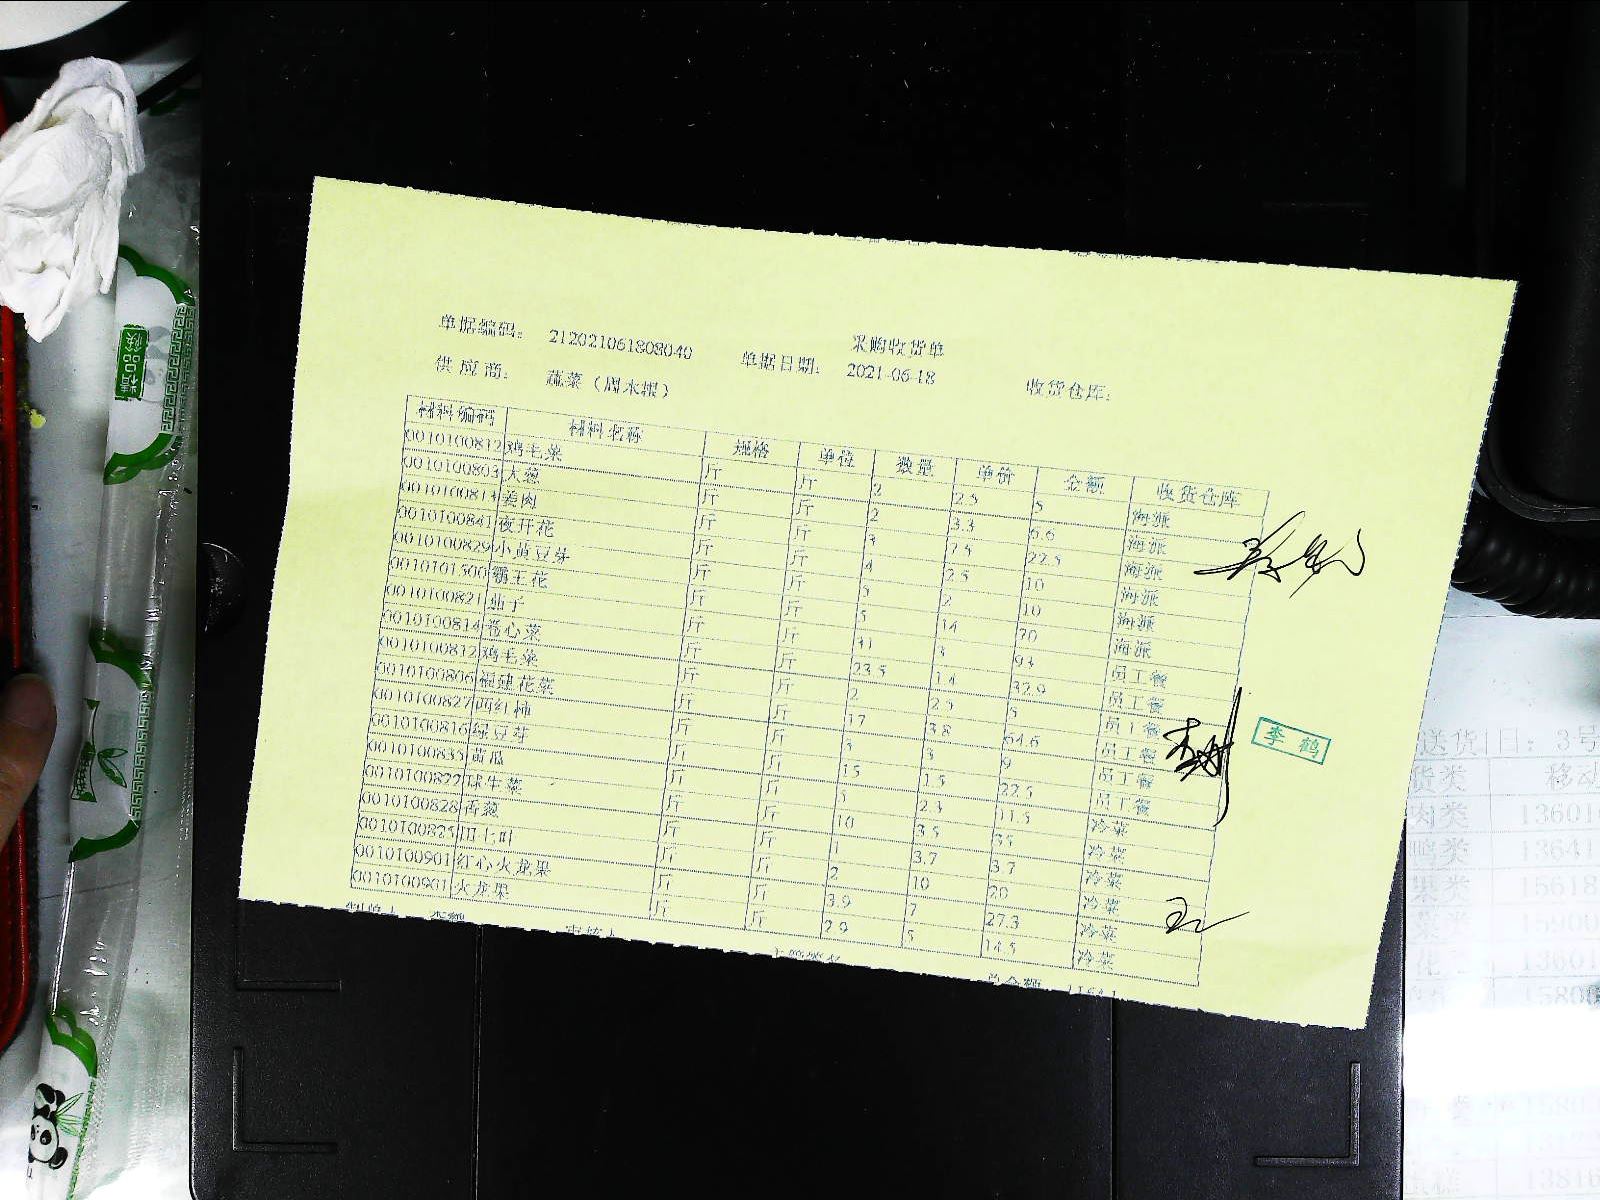 采购收货单
单据编码: 212021061808040 单据日期: 2021-06-18 收货仓库:
供应商: 蔬菜
材料编码 材料名称 规格 单位 数量 单价 金额 收货仓库
0010100812 鸡毛菜 斤 斤 2 2.5 5 海派
0010100803 大葱 斤 斤 2 3.3 6.6 海派
姜肉 斤 斤 3 7.5 22.5 海派
0010100841 夜开花 斤 斤 4 2.5 10 海派
0010100829 小黄豆芽 斤 斤 5 2 10 海派
0010101500 霸王花 斤 斤 5 14 70 海派
0010100821 茄子 斤 斤 31 3 93 员工餐
0010100814 卷心菜 斤 斤 23.5 1.4 32.9 员工餐
0010100812 鸡毛菜 斤 斤 2 2.5 5 员工餐
0010100806 福建花菜 斤 斤 17 3.8 64.6 员工餐
0010100827 西红柿 斤 斤 3 3 9 员工餐
0010100816 绿豆芽 斤 斤 15 1.5 22.5 员工餐
0010100835 黄瓜 斤 斤 5 2.3 11.5 冷菜
0010100822 球生菜 斤 斤 10 3.5 35 冷菜
0010100828 香葱 斤 斤 1 3.7 3.7 冷菜
0010100825 斤 斤 2 10 20 冷菜
0010100901 红心火龙果 斤 斤 3.9 7 27.3 冷菜
0010100901 火龙果 斤 斤 2.9 5 14.5 冷菜
总金额
李鹤
送货 日: 3号
货类 移动
肉类 1360
鸭类 13641
果类 15618
15900
1360
15800